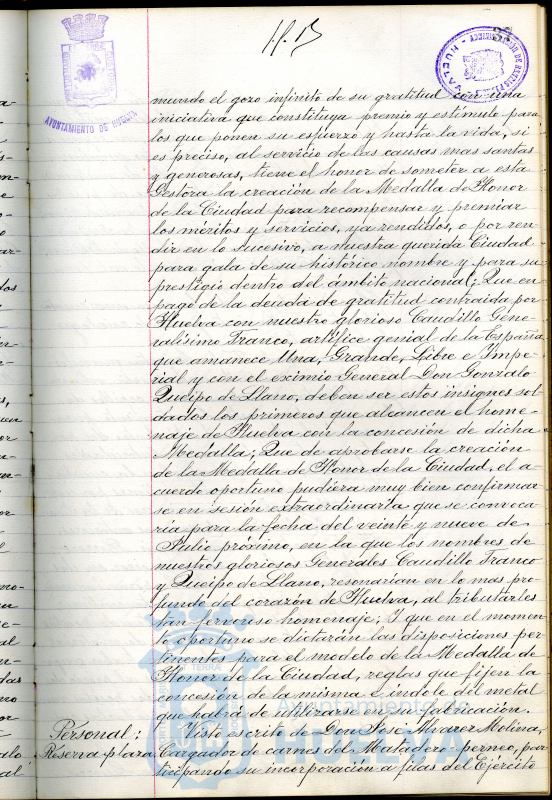 AYUNTAMIENTO DE HUELVA
mundo el gozo infinito de su gratitud con una
iniciativa que constituya premio y estímulo para
los que ponen su esfuerzo y hasta la vida, si
es preciso, al servicio de las causas mas santas
y generosas, tiene el honor de someter a esta
Gestora la creación de la Medalla de Honor
de la Ciudad para recompensar y premiar
los méritos y servicios, ya rendidos, o por ren-
dir en lo sucesivo, a nuestra querida Ciudad
para gala de su histórico nombre y para su
prestigio dentro del ámbito nacional; Que en
pago de la deuda de gratitud contraida por
Huelva con nuestro glorioso Caudillo Gene-
ralísimo Franco, artífice genial de la España
que amanece Una, Grande, Libre e Impe-
rial y con el eximio General Don Gonzalo
Queipo de Llano, deben ser estos insignes sol-
dados los primeros que alcancen el home-
naje de Huelva con la concesión de dicha
Medalla; Que de aprobarse la creación
de la Medalla de Honor de la Ciudad, el a-
cuerdo oportuno pudiera muy bien confirmar-
se en sesión extraordinaría que se convoca-
ría para la fecha del veinte y nueve de
Julio próximo, en la que los nombres de
nuestros gloriosos Generales Caudillo Franco
y Queipo de Llano, resonarian en lo mas pro-
fundo del corazón de Huelva, al tributarles
tan fervoroso homenaje; Y que en el momen-
to oportuno se dictarán las disposiciones per-
tinentes para el modelo de la Medalla de
Honor de la Ciudad, reglas que fijen la
concesión de la misma e indole del metal
que habrá de utilizarse en su fabricación.
Personal: Visto escrito de Don José Alvarez Molina,
Reserva plaza Cargador de carnes del Matadero-perneo, par-
ticipando su incorporación a filas del Ejército
Ayuntamiento de
HUELVA